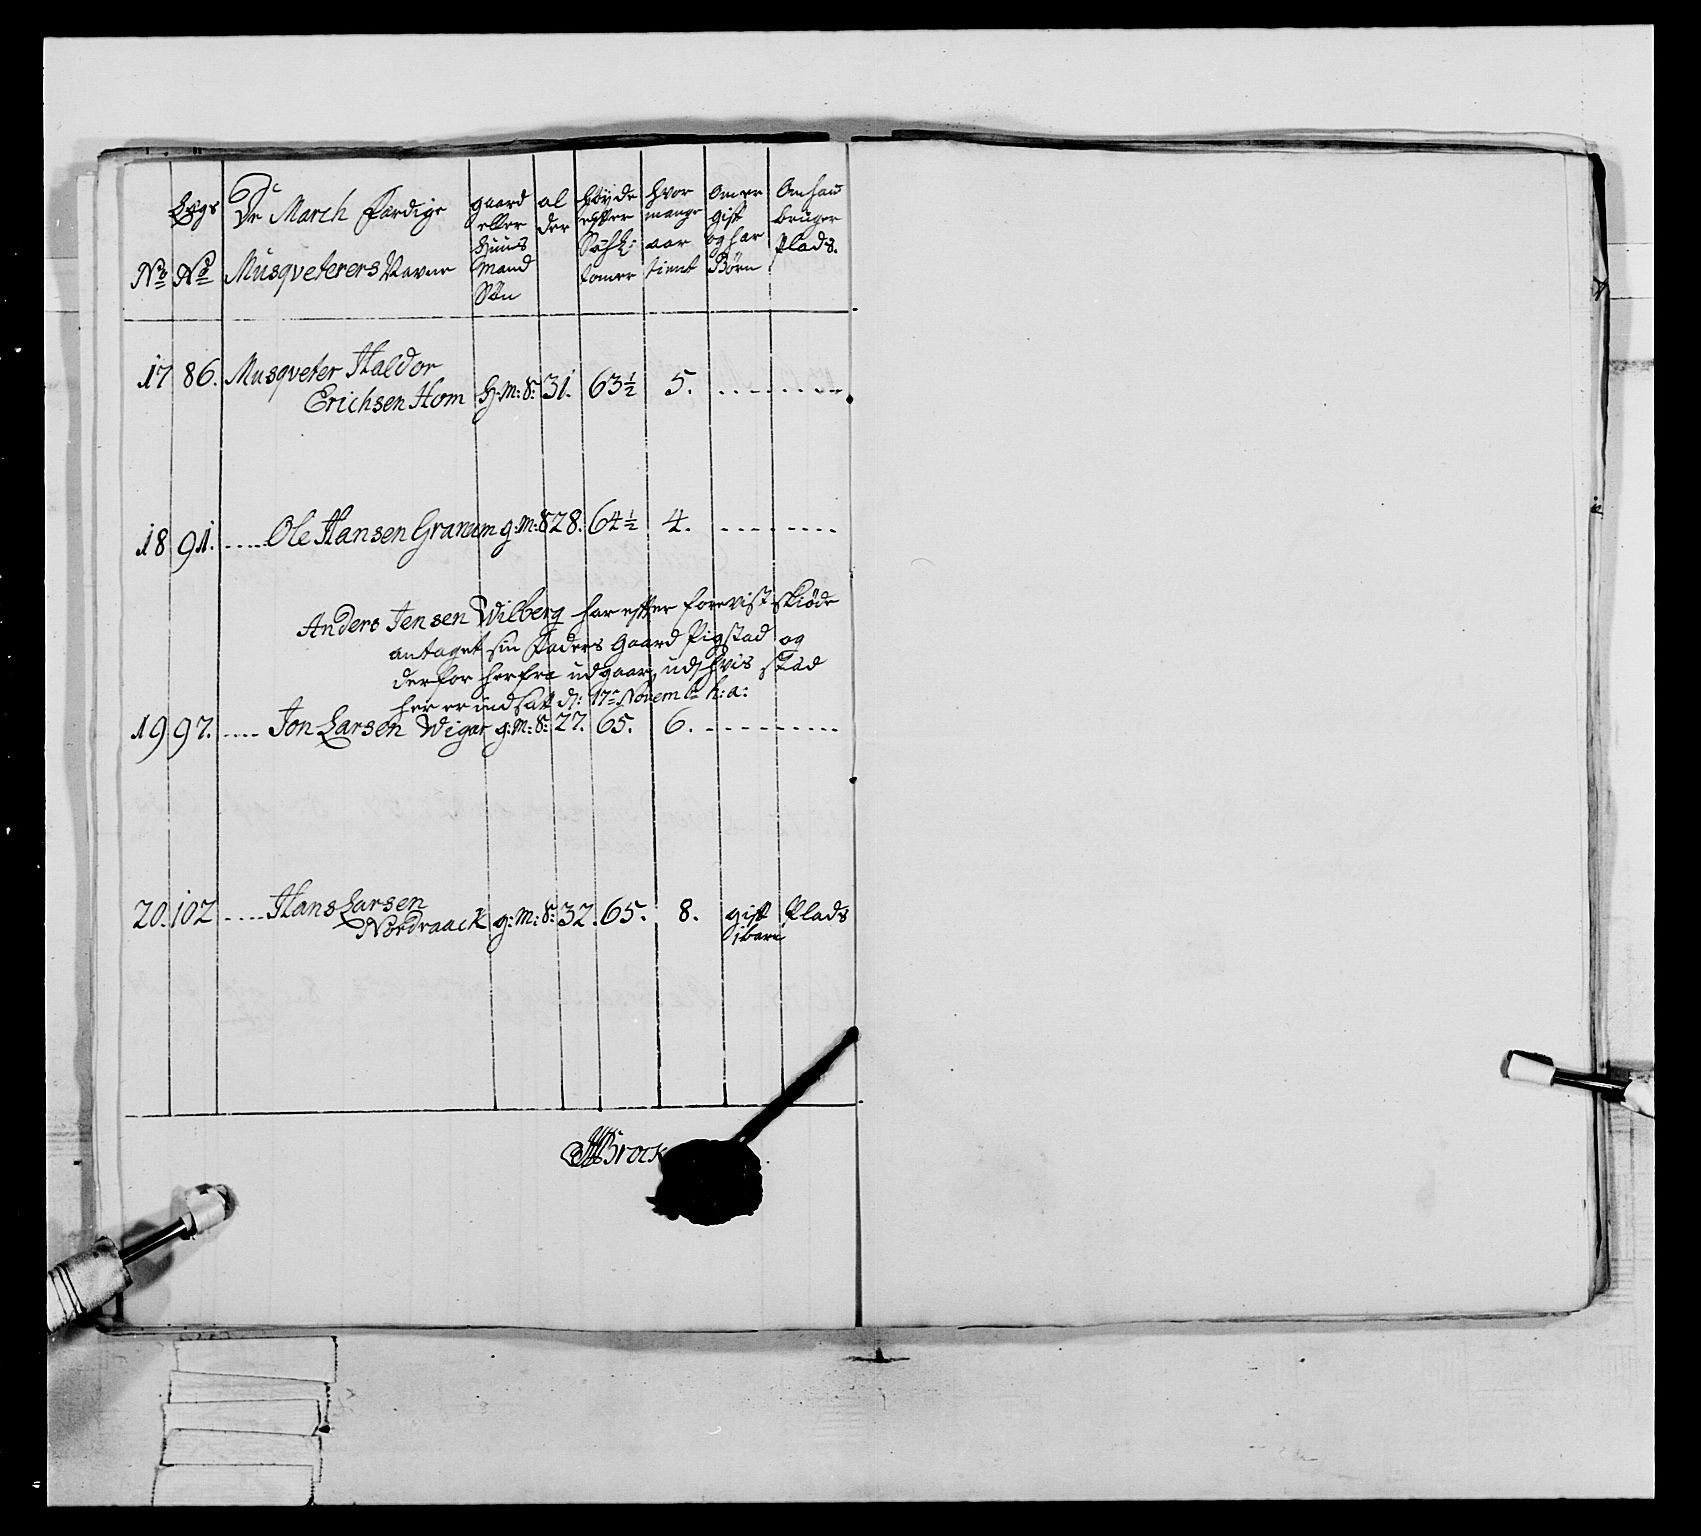 No
Lægs No
De March færdige
Musqveterers Navne
gaard
eller
Huus
Mand
Søn
al
der
høyde
efter
Tomer
hvor
mange
aar
tient
Om er
gift
og har
Børn
Om han
bruger
Plads.
17 86. Musqveter Haldor
Erichsen Hom H:M:S: 31. 63½ 5. . . . . . . . .
18 91. ..... Ole Hansen Granum g:M:S 28. 64½ 4. . . . . . . . .
Anders Jensen Wilberg har efter forevist skiøde
antaget sin Faders Gaard Pigstad og
derfor herfra udgaar, udj hvis stæd
her er indsatt d: 17de Novembr h:a:
19 97. .... Jon Larsen Wigar g:M:S: 27. 65. 6. . . . . . . . . .
20. 102 .... Hans Larsen
Nordraack g:M:S: 32. 65. 8. gift Plads
1 barn
Brock